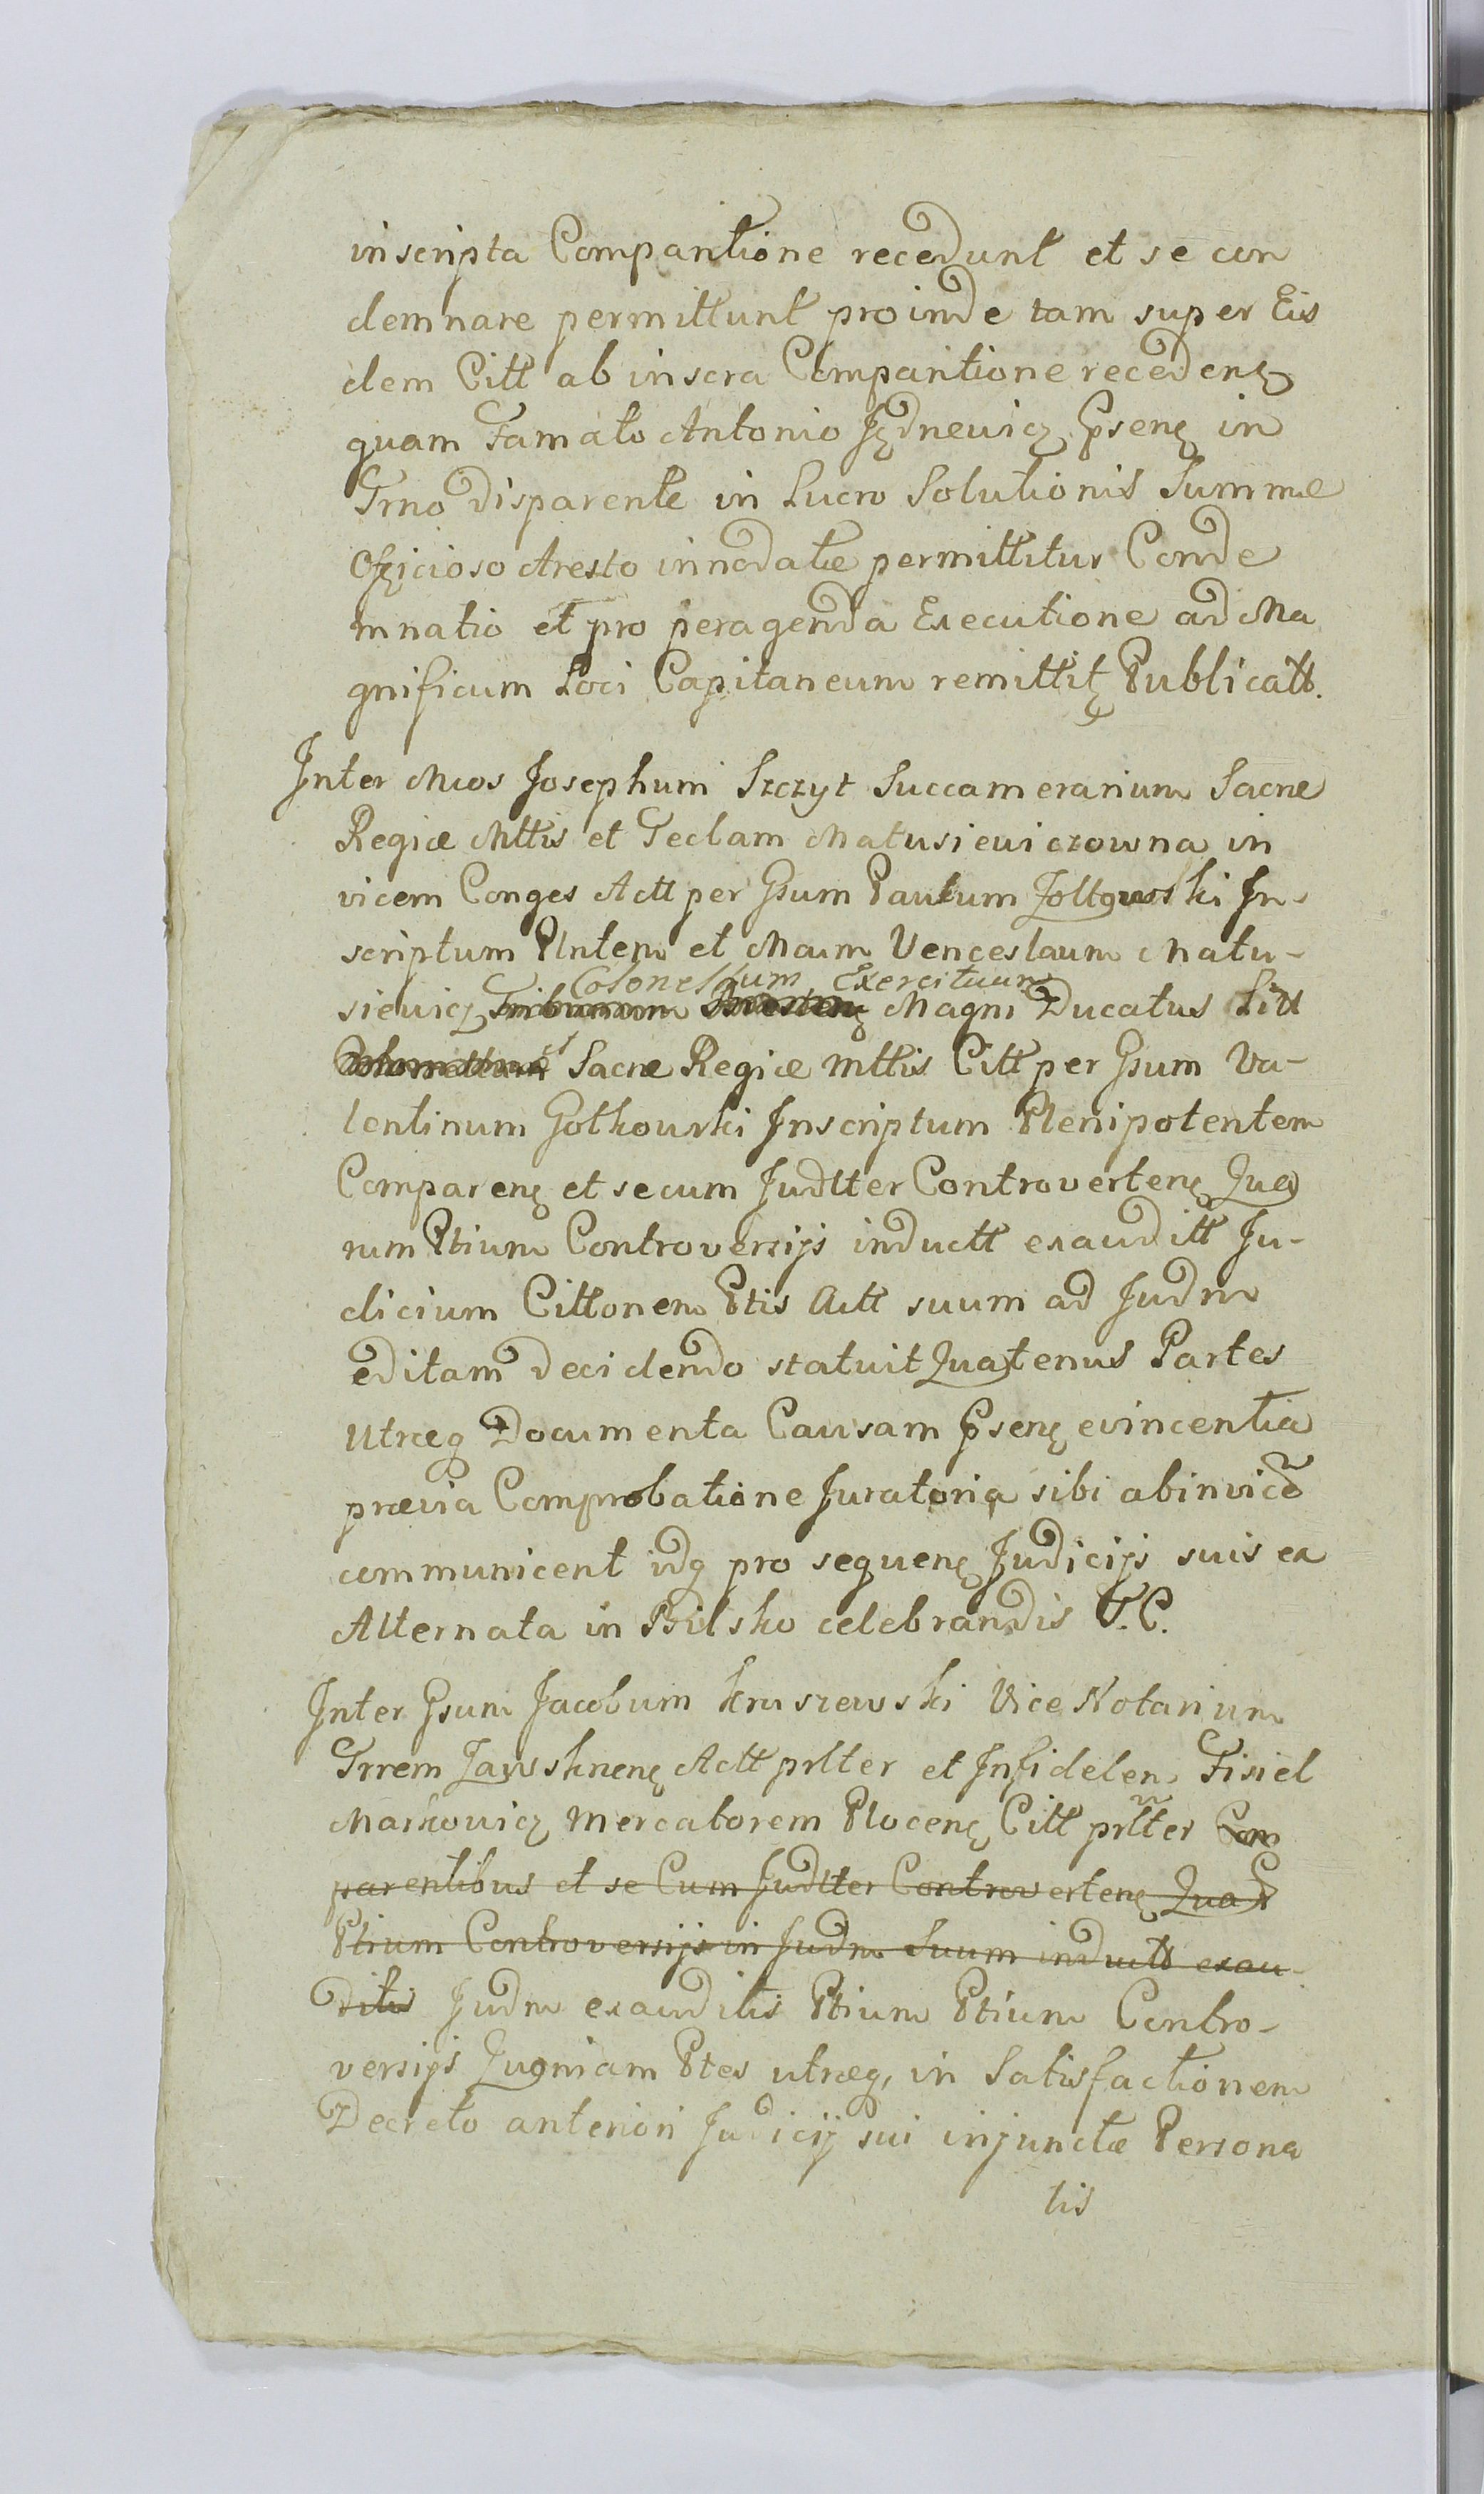 inscripta Comparitione recedunt et se con
demnare permittunt proinde tam super Eis
dem Citt ab inscra Comparitione recedenę
quam Famato Antonio Jędnevicz Ppsenę in
Trno disparente in Lucro Solutionis Summæ
Officioso Aresto innodatæ permittitur Conde
mnatio et pro peragenda Executione ad Ma
gnificum Loci Capitaneum remittitę Publicatt.
Inter Mcos Josephum Szczyt Succamerarium Sacræ
Regiæ Mttis et Teclam Matusieviczowna in
vicem Conges Actt per Gsum Paulum In-
scriptum Plntem et Mcum Venceslaum Matu-
Colonellum Exercituum
sievicz Magni Ducatus Litt
et Sacræ Regiæ Mttis Citt per Gsum Va-
lentinum Gołkowski Inscriptum Plenipotentem
Comparenę et secum Judtter Controvertenę Qua
rum Ptium Controversijs inductt exauditt Ju-
dicium Cittonem Ptis Actt suum ad Judm
editam decidendo statuit Quatenus Partes
Utræq Documenta Causam Ppsenę evincentia
prævia Comprobatione Juratoria sibi abinvice
communicent idq pro sequenę Judicijs suis ex
Alternata in Bilsko celebrandis T.C.
Inter Gsum Jacobum Kruszewski Vice Notarium
Trrem Zawskrnenę Actt prltter et Infidelem Fisiel
Markovicz Mercatorem Plocenę Citt prltter Com
parentibus et se Cum Judtter Controvertenę Quar
Ptium Controversijs in Judm Suum inductt exau-
ditis Judm exauditis Ptium Ptium Contro-
versijs Quoniam Ptes utræq, in Satisfactionem
Decreto anteriori Judicij sui injunctæ Persona
lis